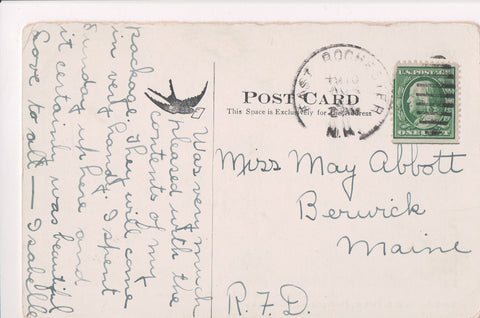 Was very much
pleased with the
contents of my
package. They will come
in very handy. I spent
Sunday up here and
it certainly was beautiful
Love to all — Isabelle
POST CARD
This Space is Exclusively for the Address
EAST ROCHESTER
N.H.
U.S. POSTAGE
ONE CENT
Miss May Abbott
Berwick
Maine
R.F.D.